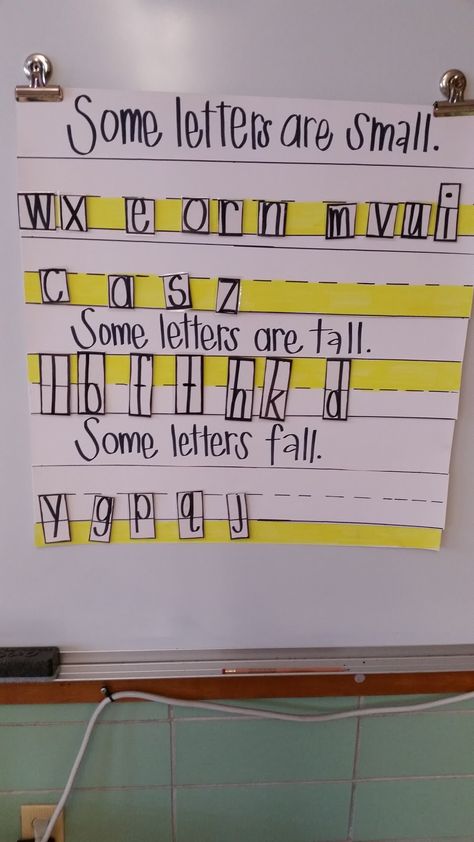 Some letters are small.
w x e o r n m v u i
c a s z
Some letters are tall.
l b f t h k d
Some letters fall.
y g p q j